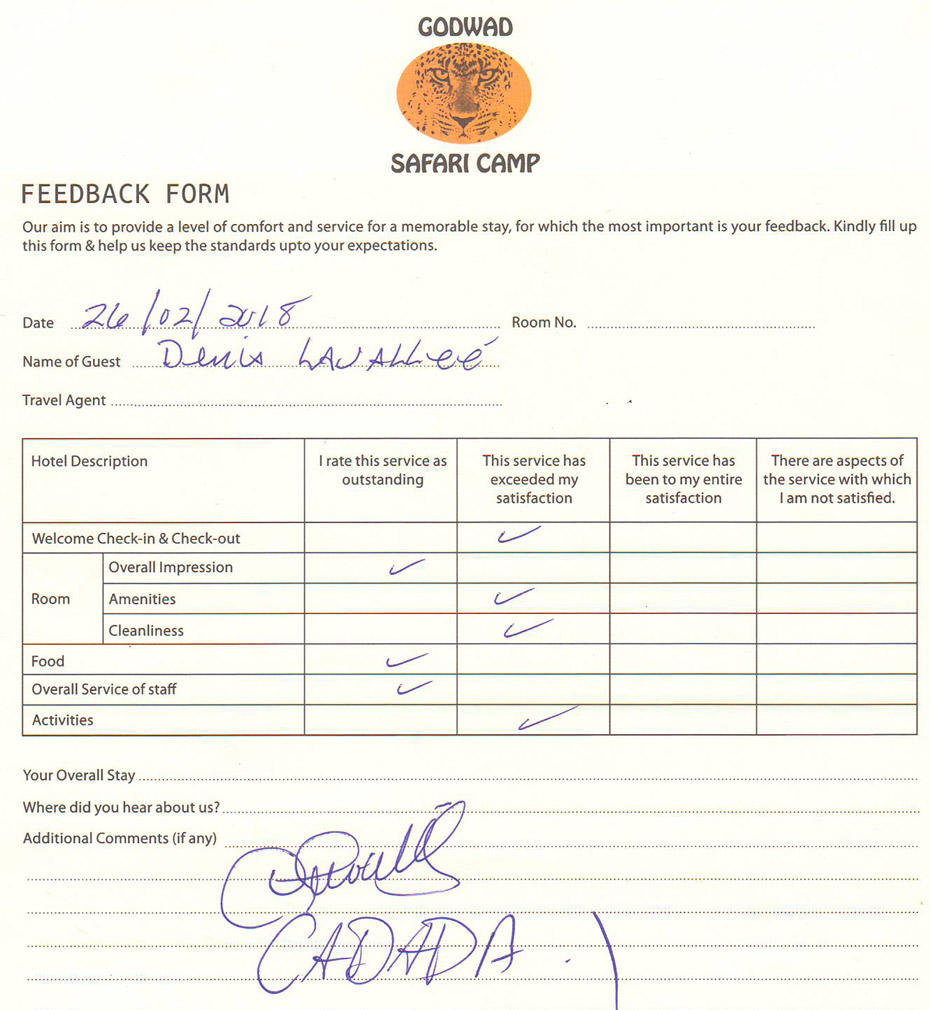 GODWAD
SAFARI CAMP
FEEDBACK FORM
Our aim is to provide a level of comfort and service for a memorable stay, for which the most important is your feedback. Kindly fill up
this form & help us keep the standards upto your expectations.
Date 26/02/2018 Room No.
Name of Guest Denis LAVALLEÉ
Travel Agent
Hotel Description I rate this service as outstanding This service has exceeded my satisfaction This service has been to my entire satisfaction There are aspects of the service with which I am not satisfied.
Welcome Check-in & Check-out ✓
Room Overall Impression ✓
Amenities ✓
Cleanliness ✓
Food ✓
Overall Service of staff ✓
Activities ✓
Your Overall Stay
Where did you hear about us?
Additional Comments (if any)
CADADA